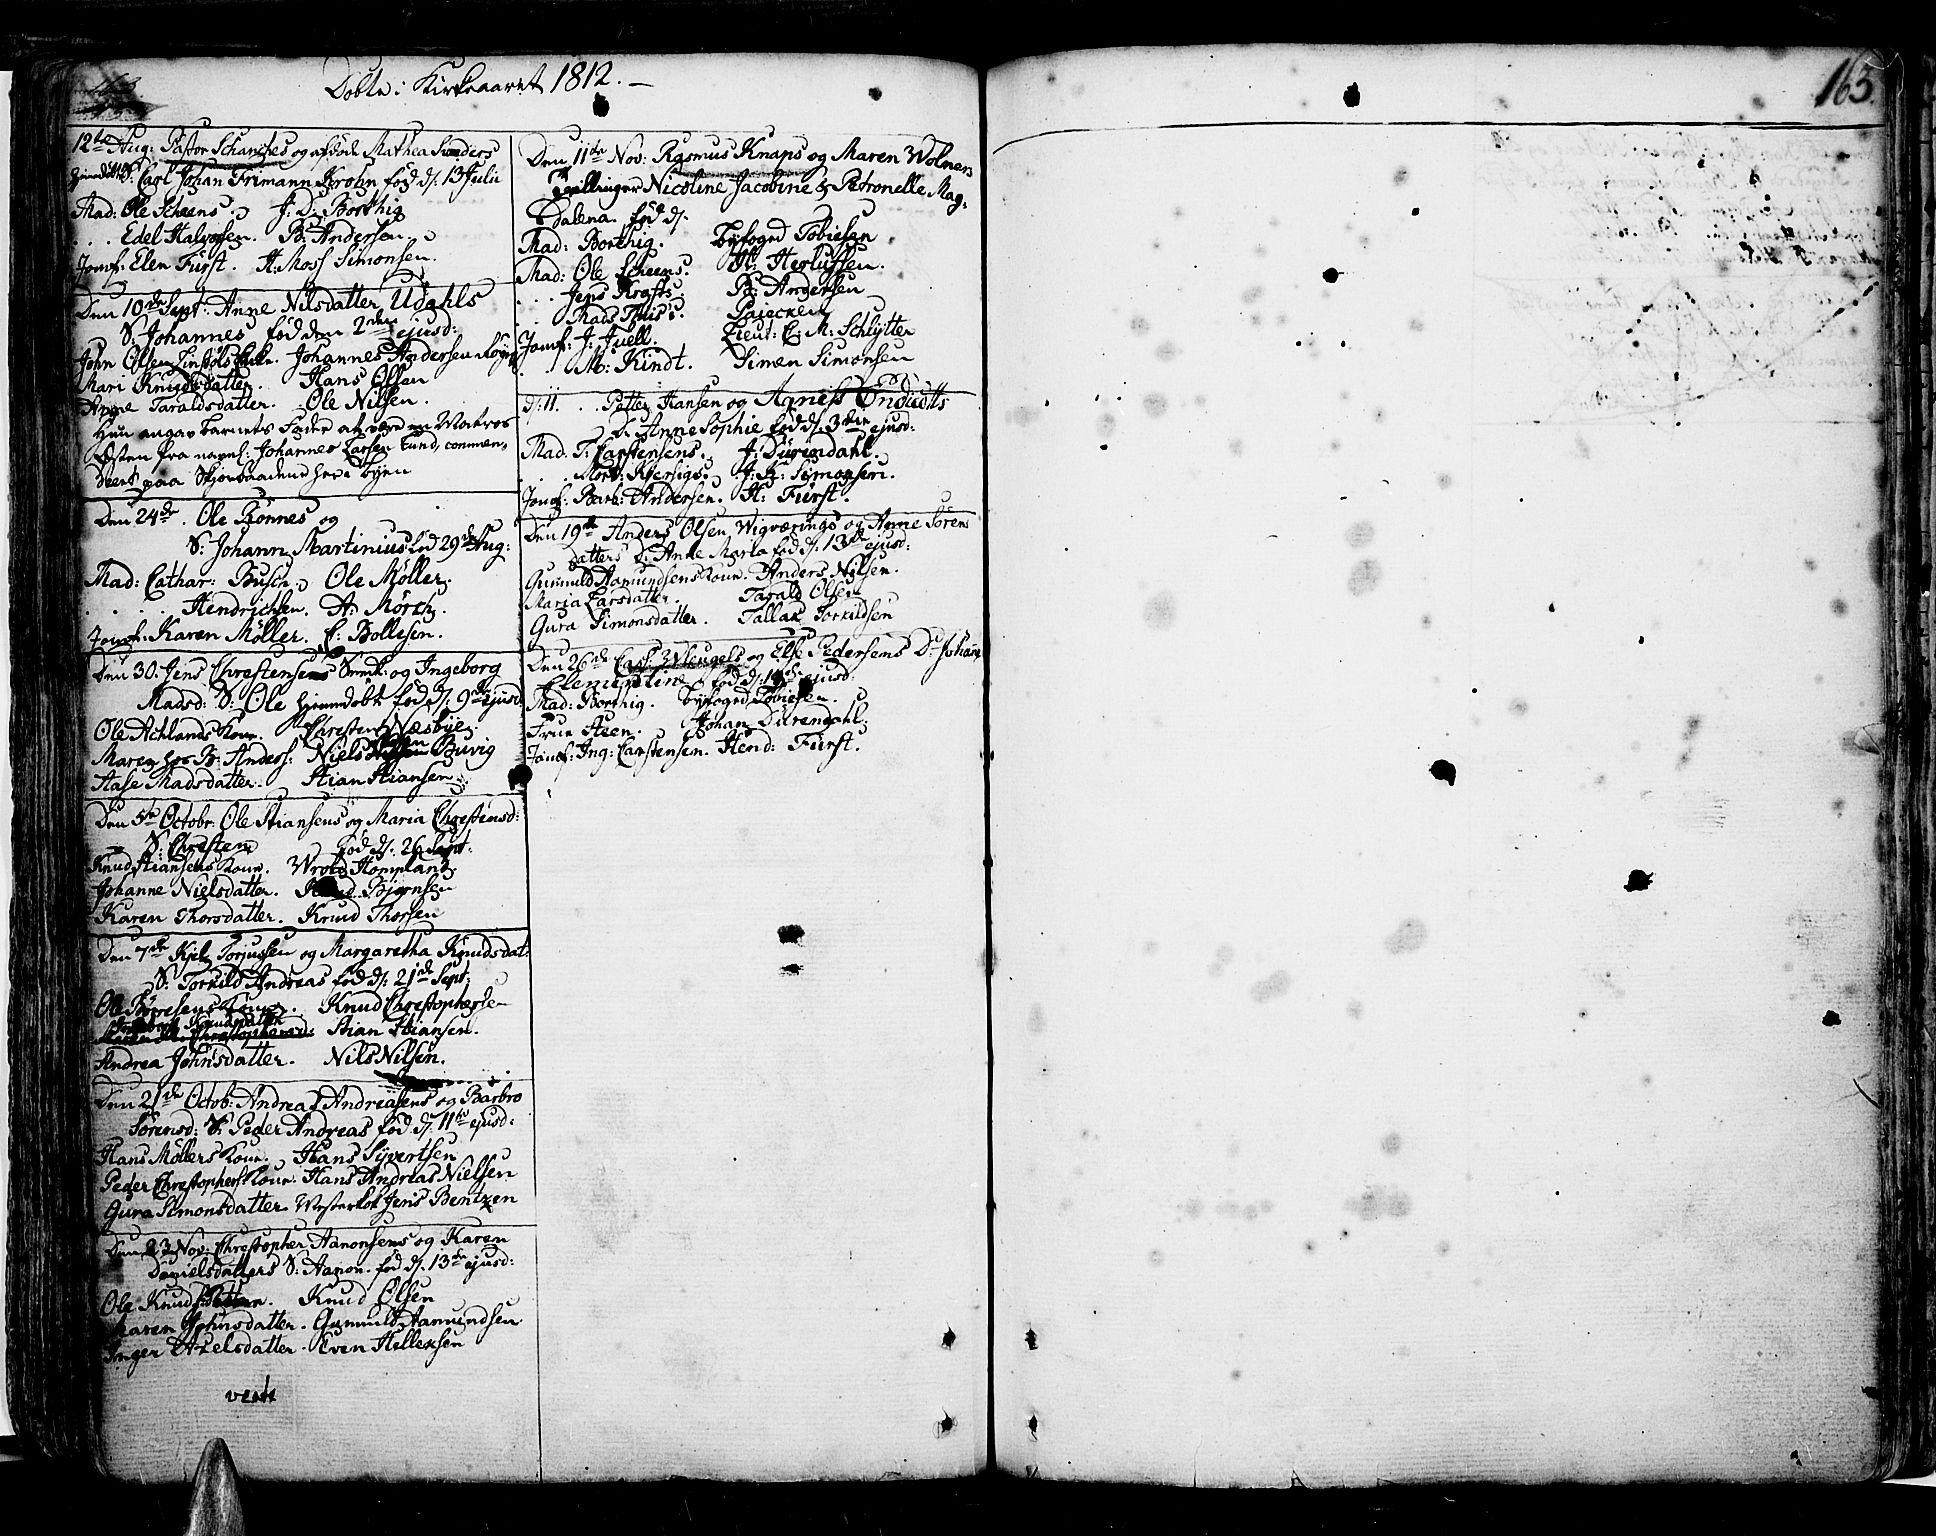 Döbte i Kirkeaaret 1812. —
163
12te Aug: Pastor Schanches og afdöde Mathea Sunders
S: Carl Johan Frimann Krohn föd d/: 13 Julii
Mad: Ole Scheens. J: D: Borthig
. . . Edel Halvorsen. B: Andersen.
Jomf: Elen Fürst. H: Moss Simonsen.
Den 10de Sept: Anne Nilsdatter Udahls
S: Johannes föd den 2den ejusd:
John Olsen Johannes Andersen
Mari Knudsdatter. Hans Olsen
Anne Taraldsdatter. Ole Nilsen.
Hun angav Barnets Fader at være en Matros
fra navnl: Johannes Larsen Lund, commen,
deert paa her i Byen
Den 24de. Ole Rönnes og
S: Johann Martinius föd 29de Aug:
Mad: Cathar: Busch. Ole Möller.
. . . Hendrichsen. A: Mörch.
Jomf: Karen Möller. C: Bollesen.
Den 30. Jens Chrestensens og Ingeborg
Madsd: S: Ole hjemmedöbt föd d/: 9de ejusd:
Ole Achlands Kone. Chresten Næsbye.
Maren hos B: Anders: Niels Buvig
Aase Madsdatter. Stian Stiansen.
Den 5te Octobr: Ole Stiansens og Maria Chrestensd:
S: Chresten föd d/: 26 Sept:
Knud Stiansens Kone. Wrold Hompland.
Johanne Nielsdatter. Knud Bjornsen
Karen Thorsdatter. Knud Thorsen
Den 7de Kjel Torjussen og Margaretha Knudsdat:
S: Torkild Andreas föd d/: 21de Sept:
Ole Börresens Kone. Knud Christophersen
Ingeborg Knudsdatter Stian Stiansen.
Andrea Johnsdatter. Nils Nilsen.
Den 21de Octob: Andreas Andreasens og Barbro
Sörensd: S: Peder Andreas föd d/: 11te ejusd:
Hans Möllers Kone. Hans Syvertsen
Peder Christophers Kone: Hans Andreas Nielsen
Gura Simonsdatter. Jens Bentzen
Den 23 Nov: Chrestopher Aanonsens og Karen
Danielsdatters S: Aanon. föd d/: 13de ejusd:
Ole Knuds Knud Olsen
Maren Johnsdatter. Gunnuld Aamundsen
Inger Axelsdatter. Even Hellexsen
vert
Den 11te Nov: Rasmus Knaps og Maren Wolners
Tvillinger Nicoline Jacobine & Petronelle Mag-
dalena. föd d/.
Mad: Borthig. Byfoged Tobiesen
Mad: Ole Scheens. H: Herlufsen.
. . . Jens Krafts. B: Andersen
. . Mads This's.
Jomf: J: Juell. Lieut: C: M: Schlytter
. . M: Kindt. Simen Simonsen
d/: 11. . . Petter Hansen og Agness
D: Anne Sophie föd d/: 3die ejusd:
Mad. T: Carstensens. J: Dürendahl.
. . . Mort: J: K: Simonsen.
Jomf: Barb: Andersen. H: Fürst.
Den 19de Anders Olsen Wigværings og Anne Sörens
datters D: Anne Maria föd d/: 13de ejusd:
Gunnuld Aamundsens Kone. Anders Nilsen.
Maria Larsdatter. Tarald Olsen
Gura Simonsdatter. Tallak Torkildsen
Den 26de Carl Wleugels og Else Pedersens Dr Johane
Clementine föd d/: ejusd:
Mad: Borthig. Byfoged Tobiesen
Frue Steen. Johan Dürendahl.
Jomf: Ing: Carstensen. Hend: Fürst.
163.